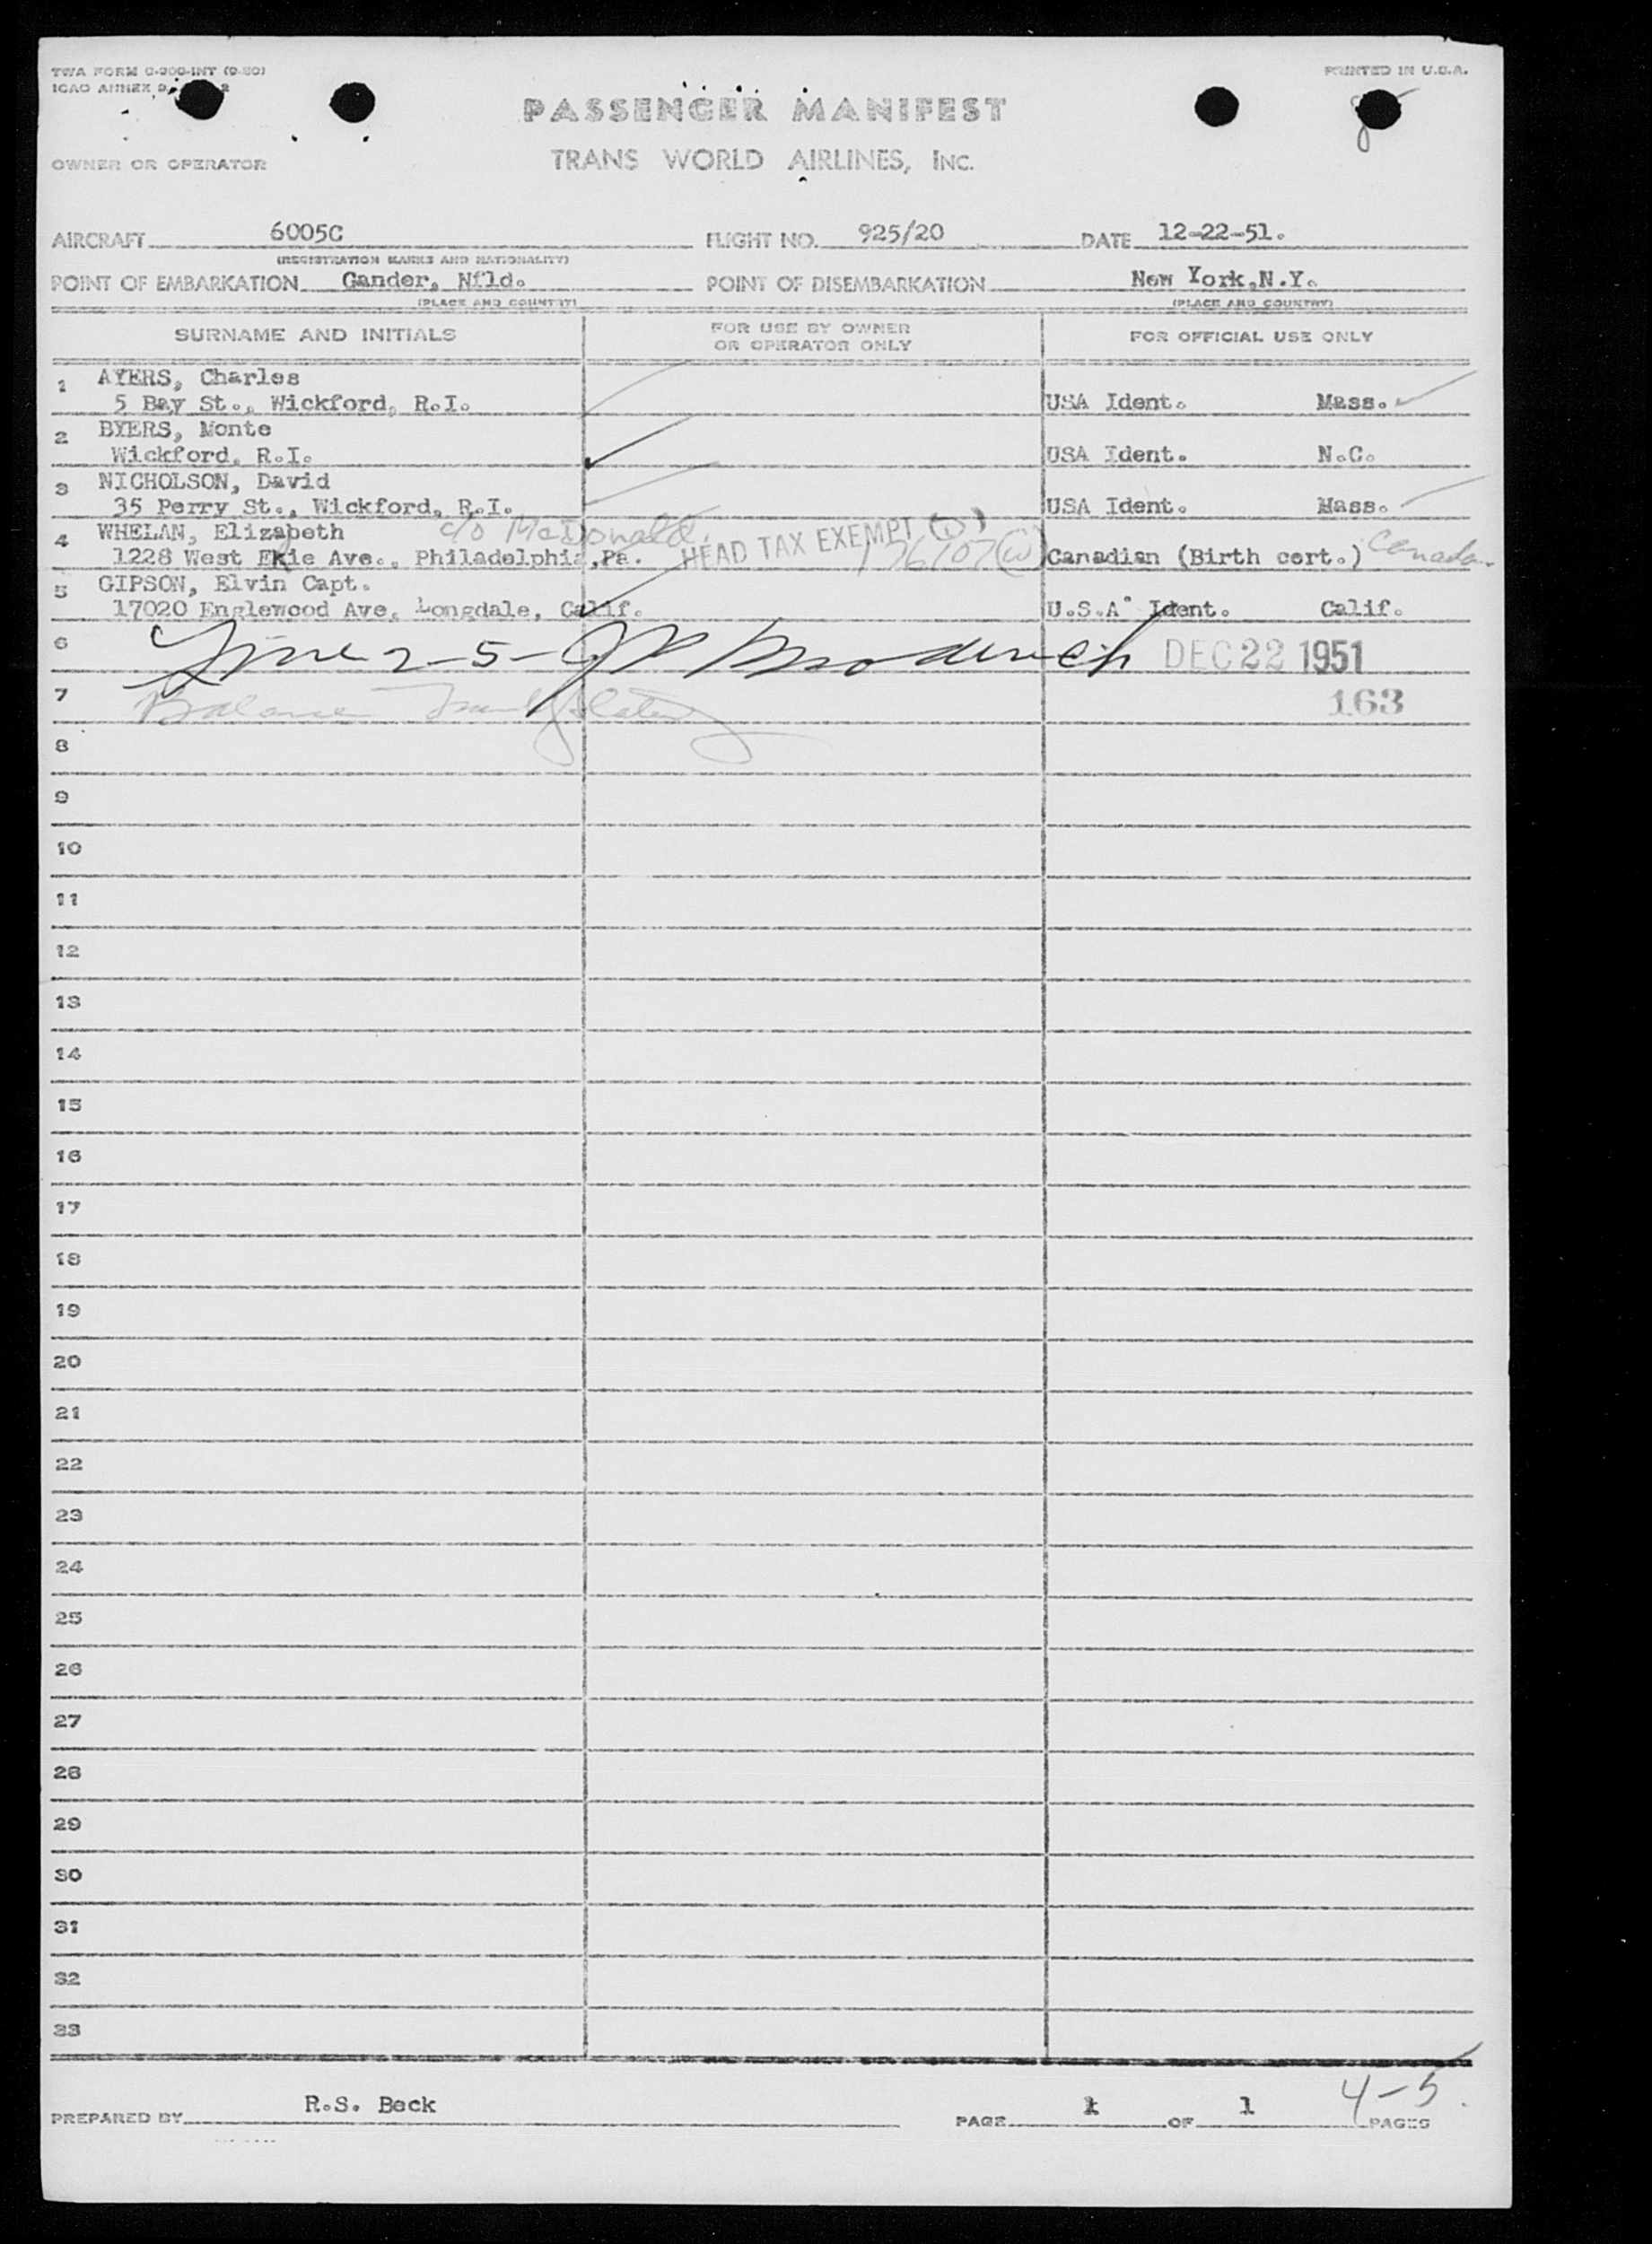 TWA FORM C-300-INT (9-50)
PRINTED IN U.S.A.
ICAO ANNEX 9
PASSENGER MANIFEST
OWNER OR OPERATOR
TRANS WORLD AIRLINES, INC.
AIRCRAFT 6005C FLIGHT NO. 925/20 DATE 12-22-51.
(REGISTRATION MARKS AND NATIONALITY)
POINT OF EMBARKATION Gander, Nfld. POINT OF DISEMBARKATION New York,N.Y.
(PLACE AND COUNTRY) (PLACE AND COUNTRY)
SURNAME AND INITIALS FOR USE BY OWNER OR OPERATOR ONLY FOR OFFICIAL USE ONLY
1 AYERS, Charles
5 Bay St., Wickford, R.I. USA Ident. Mass.
2 BYERS, Monte
Wickford, R.I. USA Ident. N.C.
3 NICHOLSON, David
35 Perry St., Wickford, R.I. USA Ident. Mass.
4 WHELAN, Elizabeth c/o McDonald. HEAD TAX EXEMPT
1228 West Erie Ave., Philadelphia,Pa. Canadian (Birth cert.) Canada.
5 GIPSON, Elvin Capt.
17020 Englewood Ave, Longdale, Calif. U.S.A. Ident. Calif.
6 Line 2-5- DEC 22 1951
7 Balance 163
8
9
10
11
12
13
14
15
16
17
18
19
20
21
22
23
24
25
26
27
28
29
30
31
32
33
4-5.
PREPARED BY R.S. Beck PAGE 1 OF 1 PAGES